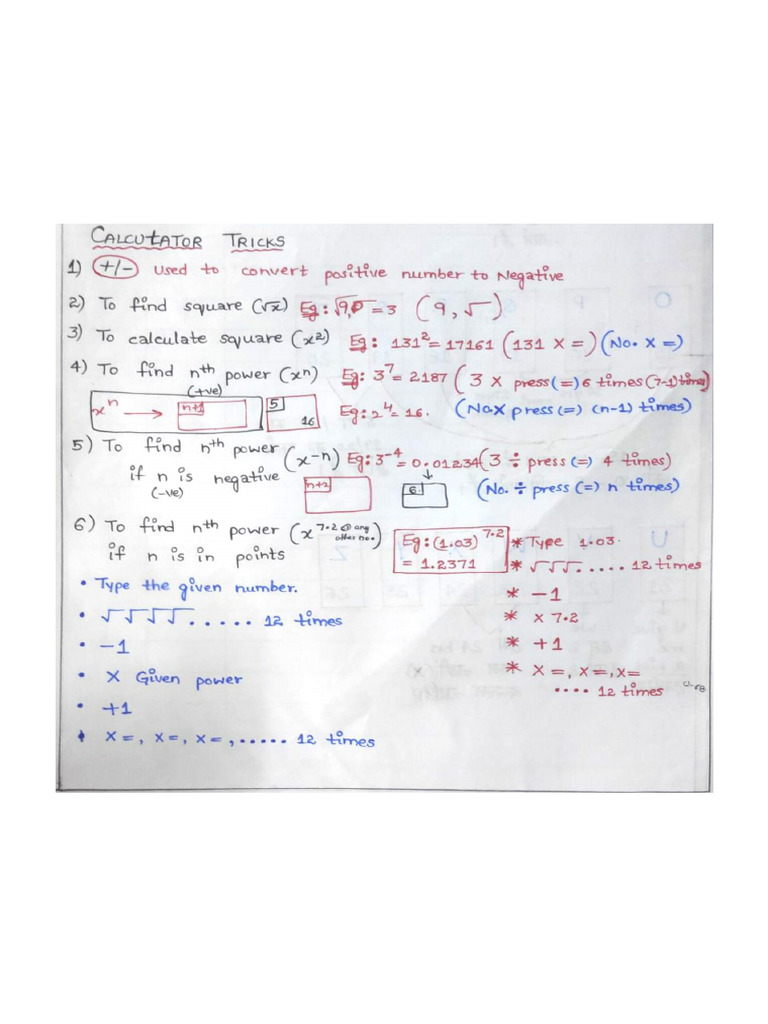 CALCUTATOR TRICKS
1) +/- Used to convert positive number to Negative
2) To find square (√x) Eg: √9 = 3 (9, √)
3) To calculate square (x²) Eg: 131² = 17161 (131 X =) (No. X =)
4) To find nth power (xⁿ) Eg: 3⁷ = 2187 (3 X press (=) 6 times (7-1) times)
(+ve)
xⁿ → n+1 5 16 Eg: 2⁴ = 16. (No. X press (=) (n-1) times)
5) To find nth power (x⁻ⁿ) Eg: 3⁻⁴ = 0.01234 (3 ÷ press (=) 4 times)
if n is negative n+2 6 (No. ÷ press (=) n times)
(-ve)
6) To find nth power (x 7.2 @ any other no.)
if n is in points
Eg: (1.03)^7.2
= 1.2371
• Type the given number.
• √√√√..... 12 times
• -1
• X Given power
• +1
• X=, X=, X=, ..... 12 times
* Type 1.03.
* √√√..... 12 times
* -1
* X 7.2
* +1
* X=, X=, X=
.... 12 times